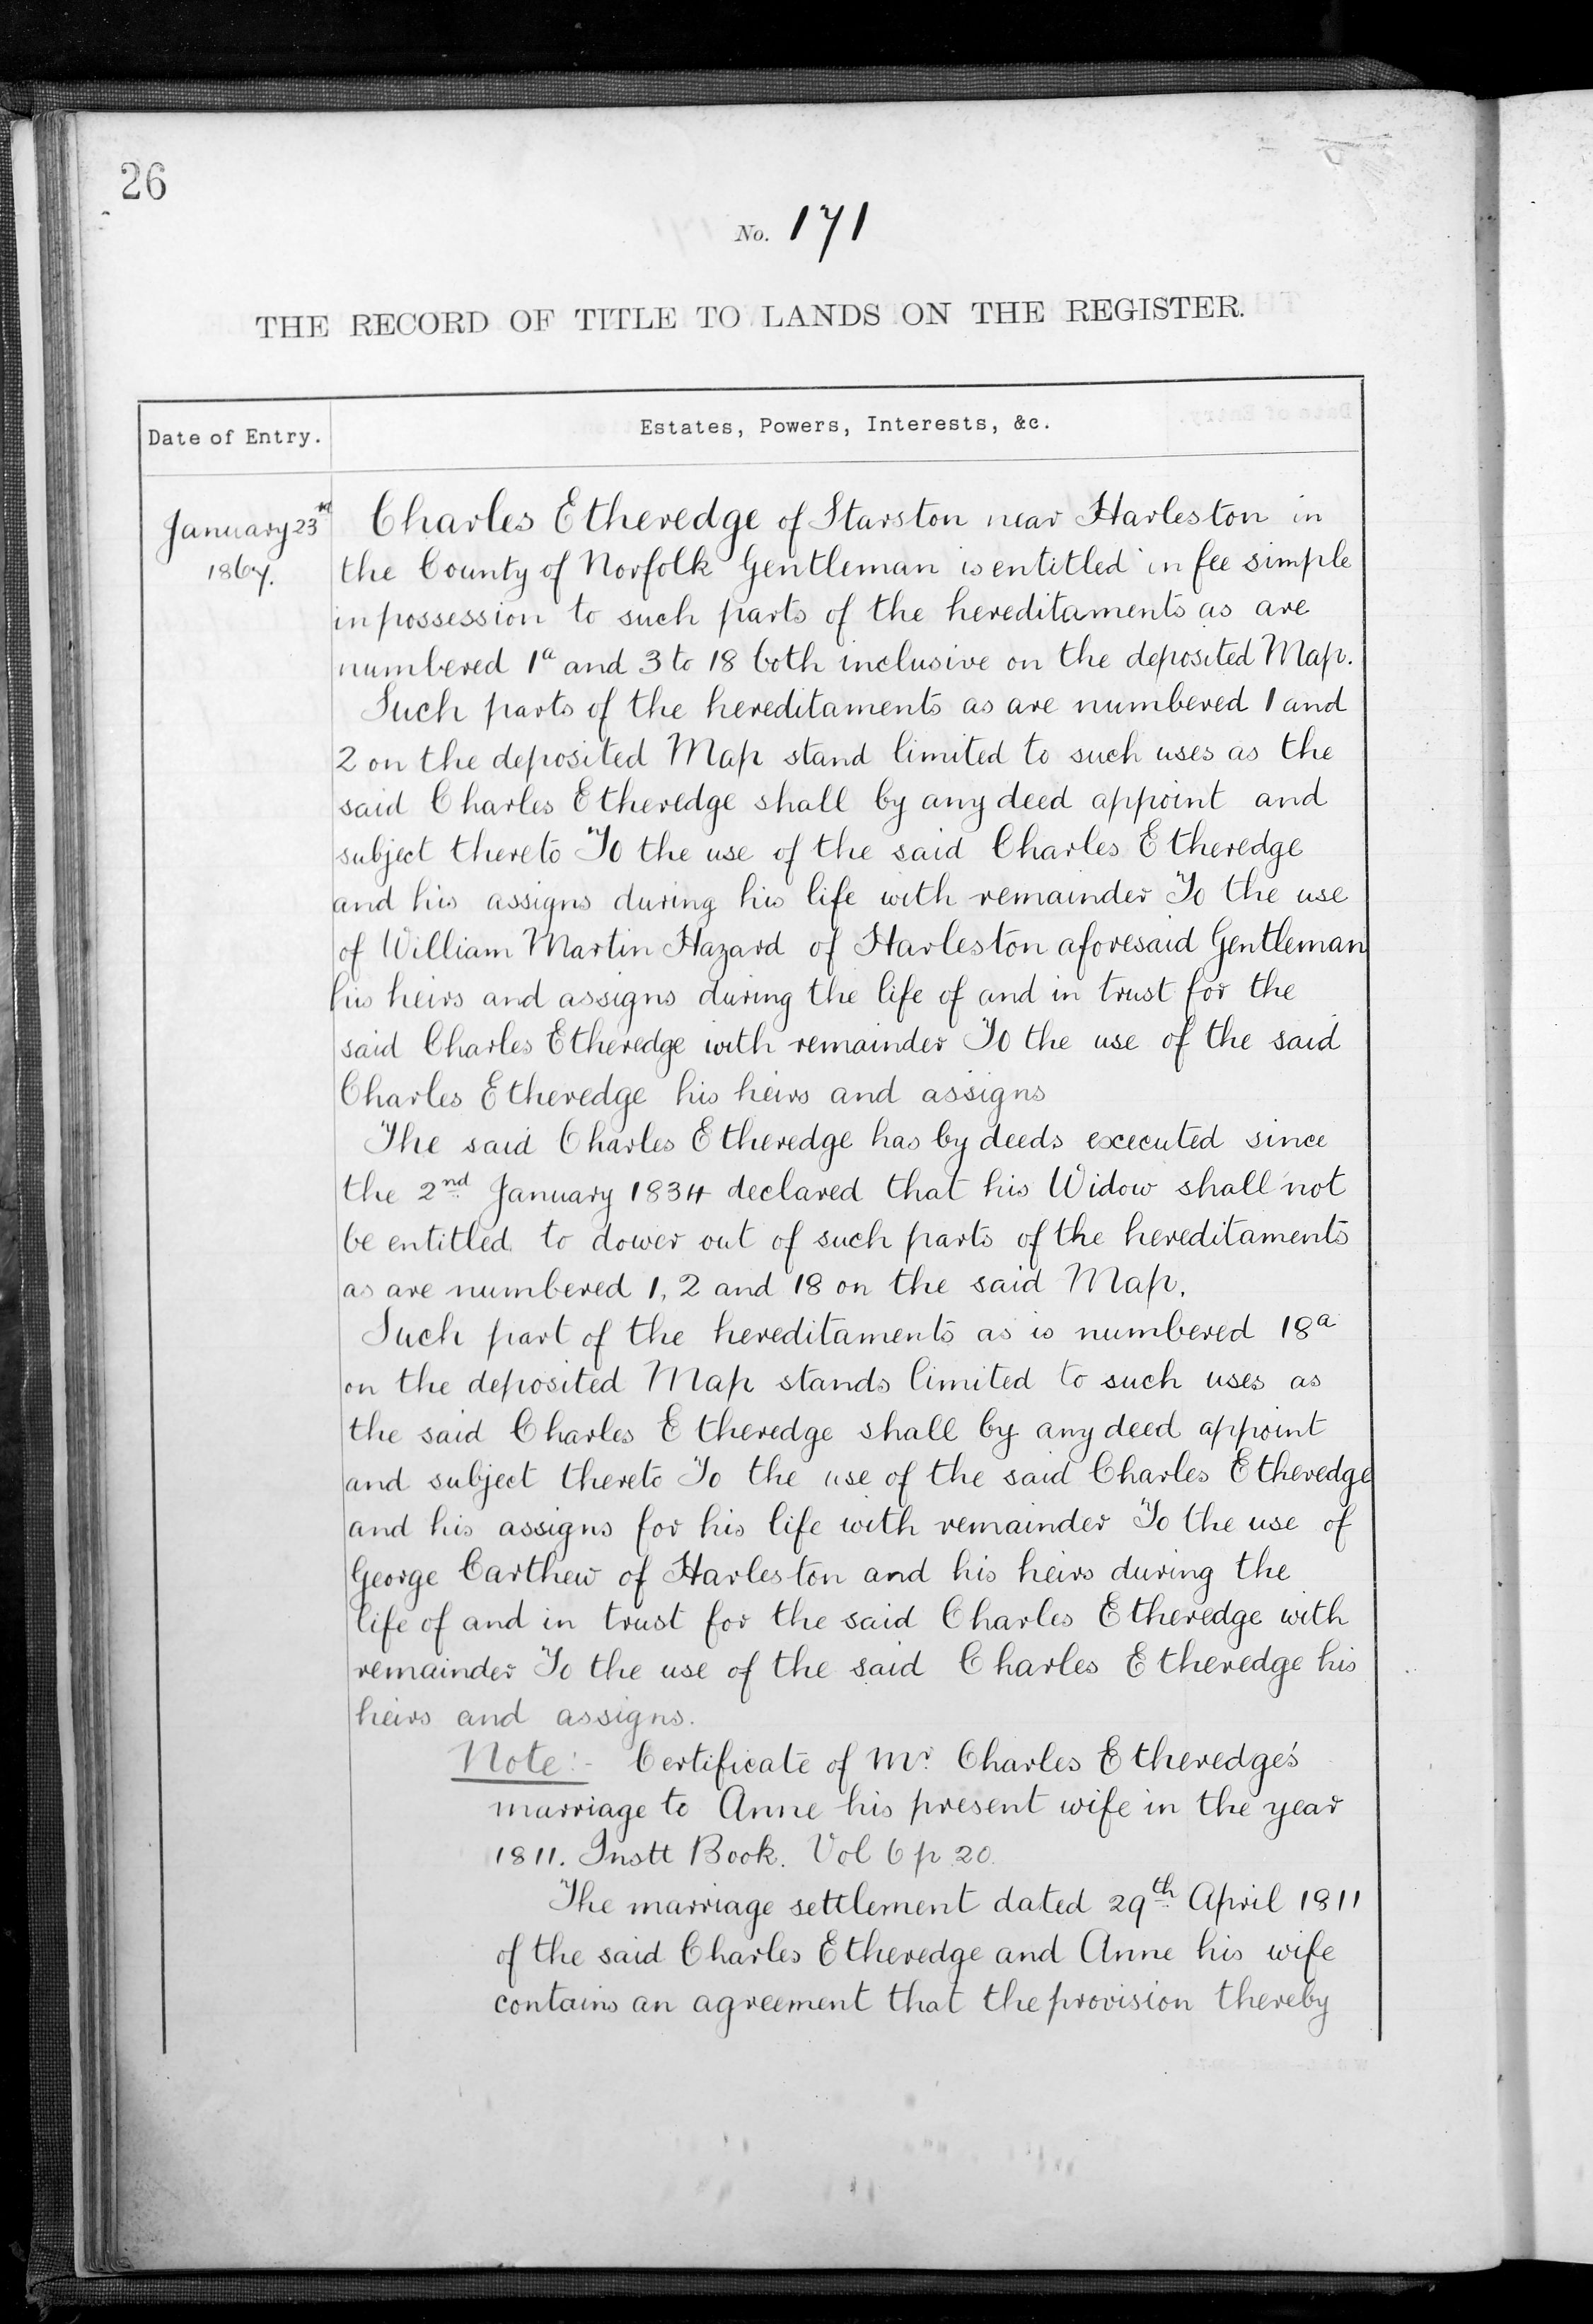 26
No. 171
THE RECORD OF TITLE TO LANDS ON THE REGISTER.
Date of Entry.
Estates, Powers, Interests, &c.
January 23rd
1867.
Charles Etheredge of Starston near Harleston in
the County of Norfolk Gentleman is entitled in fee simple
in possession to such parts of the hereditaments as are
numbered 1a and 3 to 18 both inclusive on the deposited Map.
Such parts of the hereditaments as are numbered 1 and
2 on the deposited Map stand limited to such uses as the
said Charles Etheredge shall by any deed appoint and
subject thereto To the use of the said Charles Etheredge
and his assigns during his life with remainder To the use
of William Martin Hazard of Harleston aforesaid Gentleman
his heirs and assigns during the life of and in trust for the
said Charles Etheredge with remainder To the use of the said
Charles Etheredge his heirs and assigns
The said Charles Etheredge has by deeds executed since
the 2nd January 1834 declared that his Widow shall not
be entitled to dower out of such parts of the hereditaments
as are numbered 1, 2 and 18 on the said Map.
Such part of the hereditaments as is numbered 18a
on the deposited Map stands limited to such uses as
the said Charles Etheredge shall by any deed appoint
and subject thereto To the use of the said Charles Etheredge
and his assigns for his life with remainder To the use of
George Carthew of Harleston and his heirs during the
life of and in trust for the said Charles Etheredge with
remainder To the use of the said Charles Etheredge his
heirs and assigns.
Note:- Certificate of Mr. Charles Etheredge's
marriage to Anne his present wife in the year
1811. Instt Book. Vol 6 p 20.
The marriage settlement dated 29th April 1811
of the said Charles Etheredge and Anne his wife
contains an agreement that the provision thereby